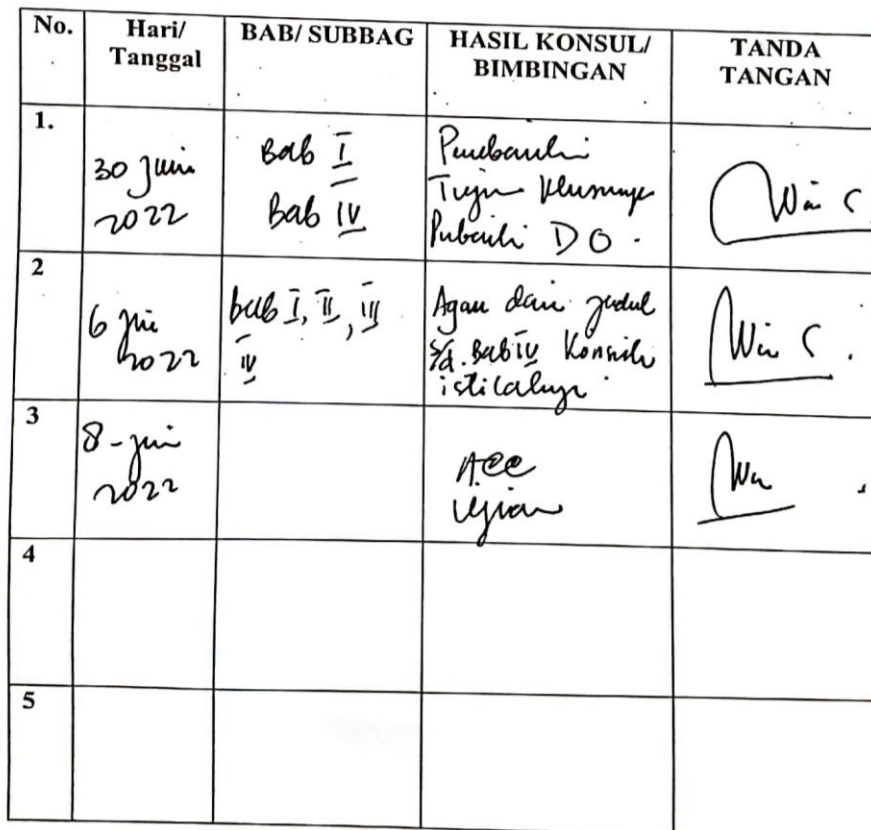 No.
Hari/
Tanggal
BAB/ SUBBAG
HASIL KONSUL/
BIMBINGAN
TANDA
TANGAN
1.
30 Juni
2022
Bab I
Bab IV
Tujun khususnya
DO.
2
6 Juni
2022
bab I, II, III
IV
Agan dari judul
s/d. Bab IV Konsisten
istilahnya
3
8-Juni
2022
Acc
Ujian
4
5